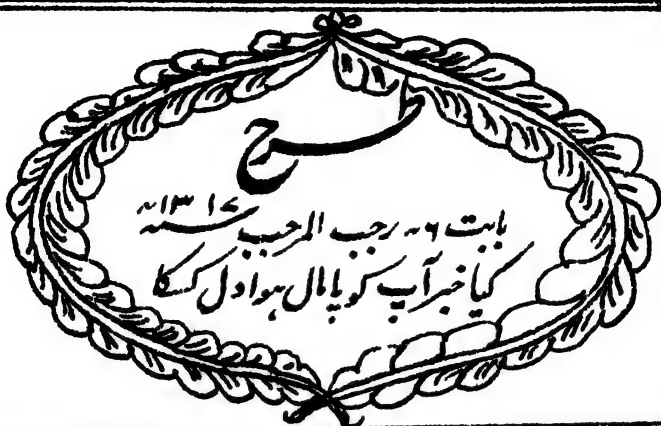 طرح
بابت ۶؍ رجب المرجب ۱۳۱۷ھ
کیا خبر آپ کو پامال ہوا دل کسکا